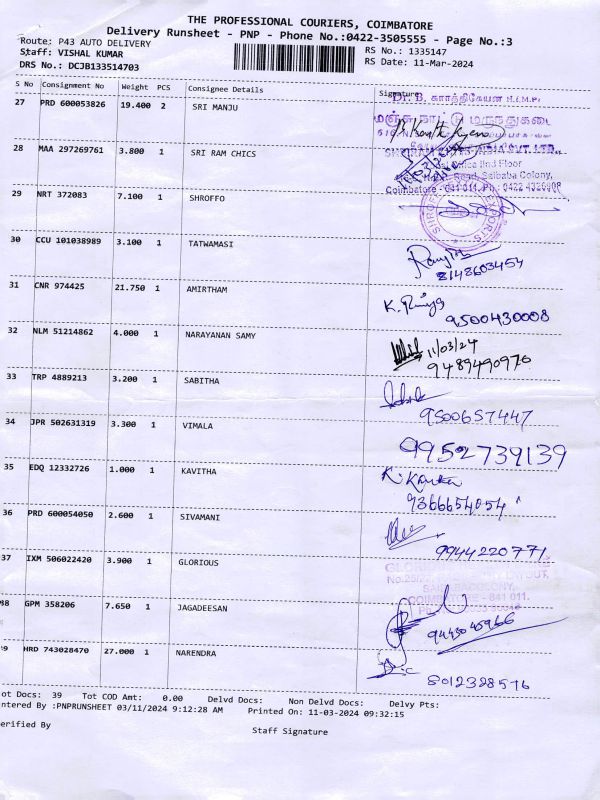 THE PROFESSIONAL COURIERS, COIMBATORE
Delivery Runsheet - PNP - Phone No.:0422-3505555 - Page No.:3
Route: P43 AUTO DELIVERY
RS No.: 1335147
Staff: VISHAL KUMAR
RS Date: 11-Mar-2024
DRS No.: DCJB133514703
S No Consignment No Weight PCS Consignee Details Signature
27 PRD 600053826 19.400 2 SRI MANJU
28 MAA 297269761 3.800 1 SRI RAM CHICS
IInd Floor
Road, Saibaba Colony,
Coimbatore - 641 011. Ph.: 0422 4326808
29 NRT 372083 7.100 1 SHROFFO
30 CCU 101038989 3.100 1 TATWAMASI
8148603454
31 CNR 974425 21.750 1 AMIRTHAM
K. Priya
9500430008
32 NLM 51214862 4.000 1 NARAYANAN SAMY
11/03/24
9489490970
33 TRP 4889213 3.200 1 SABITHA
9500657447
34 JPR 502631319 3.300 1 VIMALA
9952739139
35 EDQ 12332726 1.000 1 KAVITHA
9366654054
36 PRD 600054050 2.600 1 SIVAMANI
9944220771
37 IXM 506022420 3.900 1 GLORIOUS
SAIBABACOLONY,
COIMBATORE - 641 011.
38 GPM 358206 7.650 1 JAGADEESAN
9443045966
39 HRD 743028470 27.000 1 NARENDRA
8012328576
ot Docs: 39 Tot COD Amt: 0.00 Delvd Docs: Non Delvd Docs: Delvy Pts:
ntered By :PNPRUNSHEET 03/11/2024 9:12:28 AM Printed On: 11-03-2024 09:32:15
erified By
Staff Signature